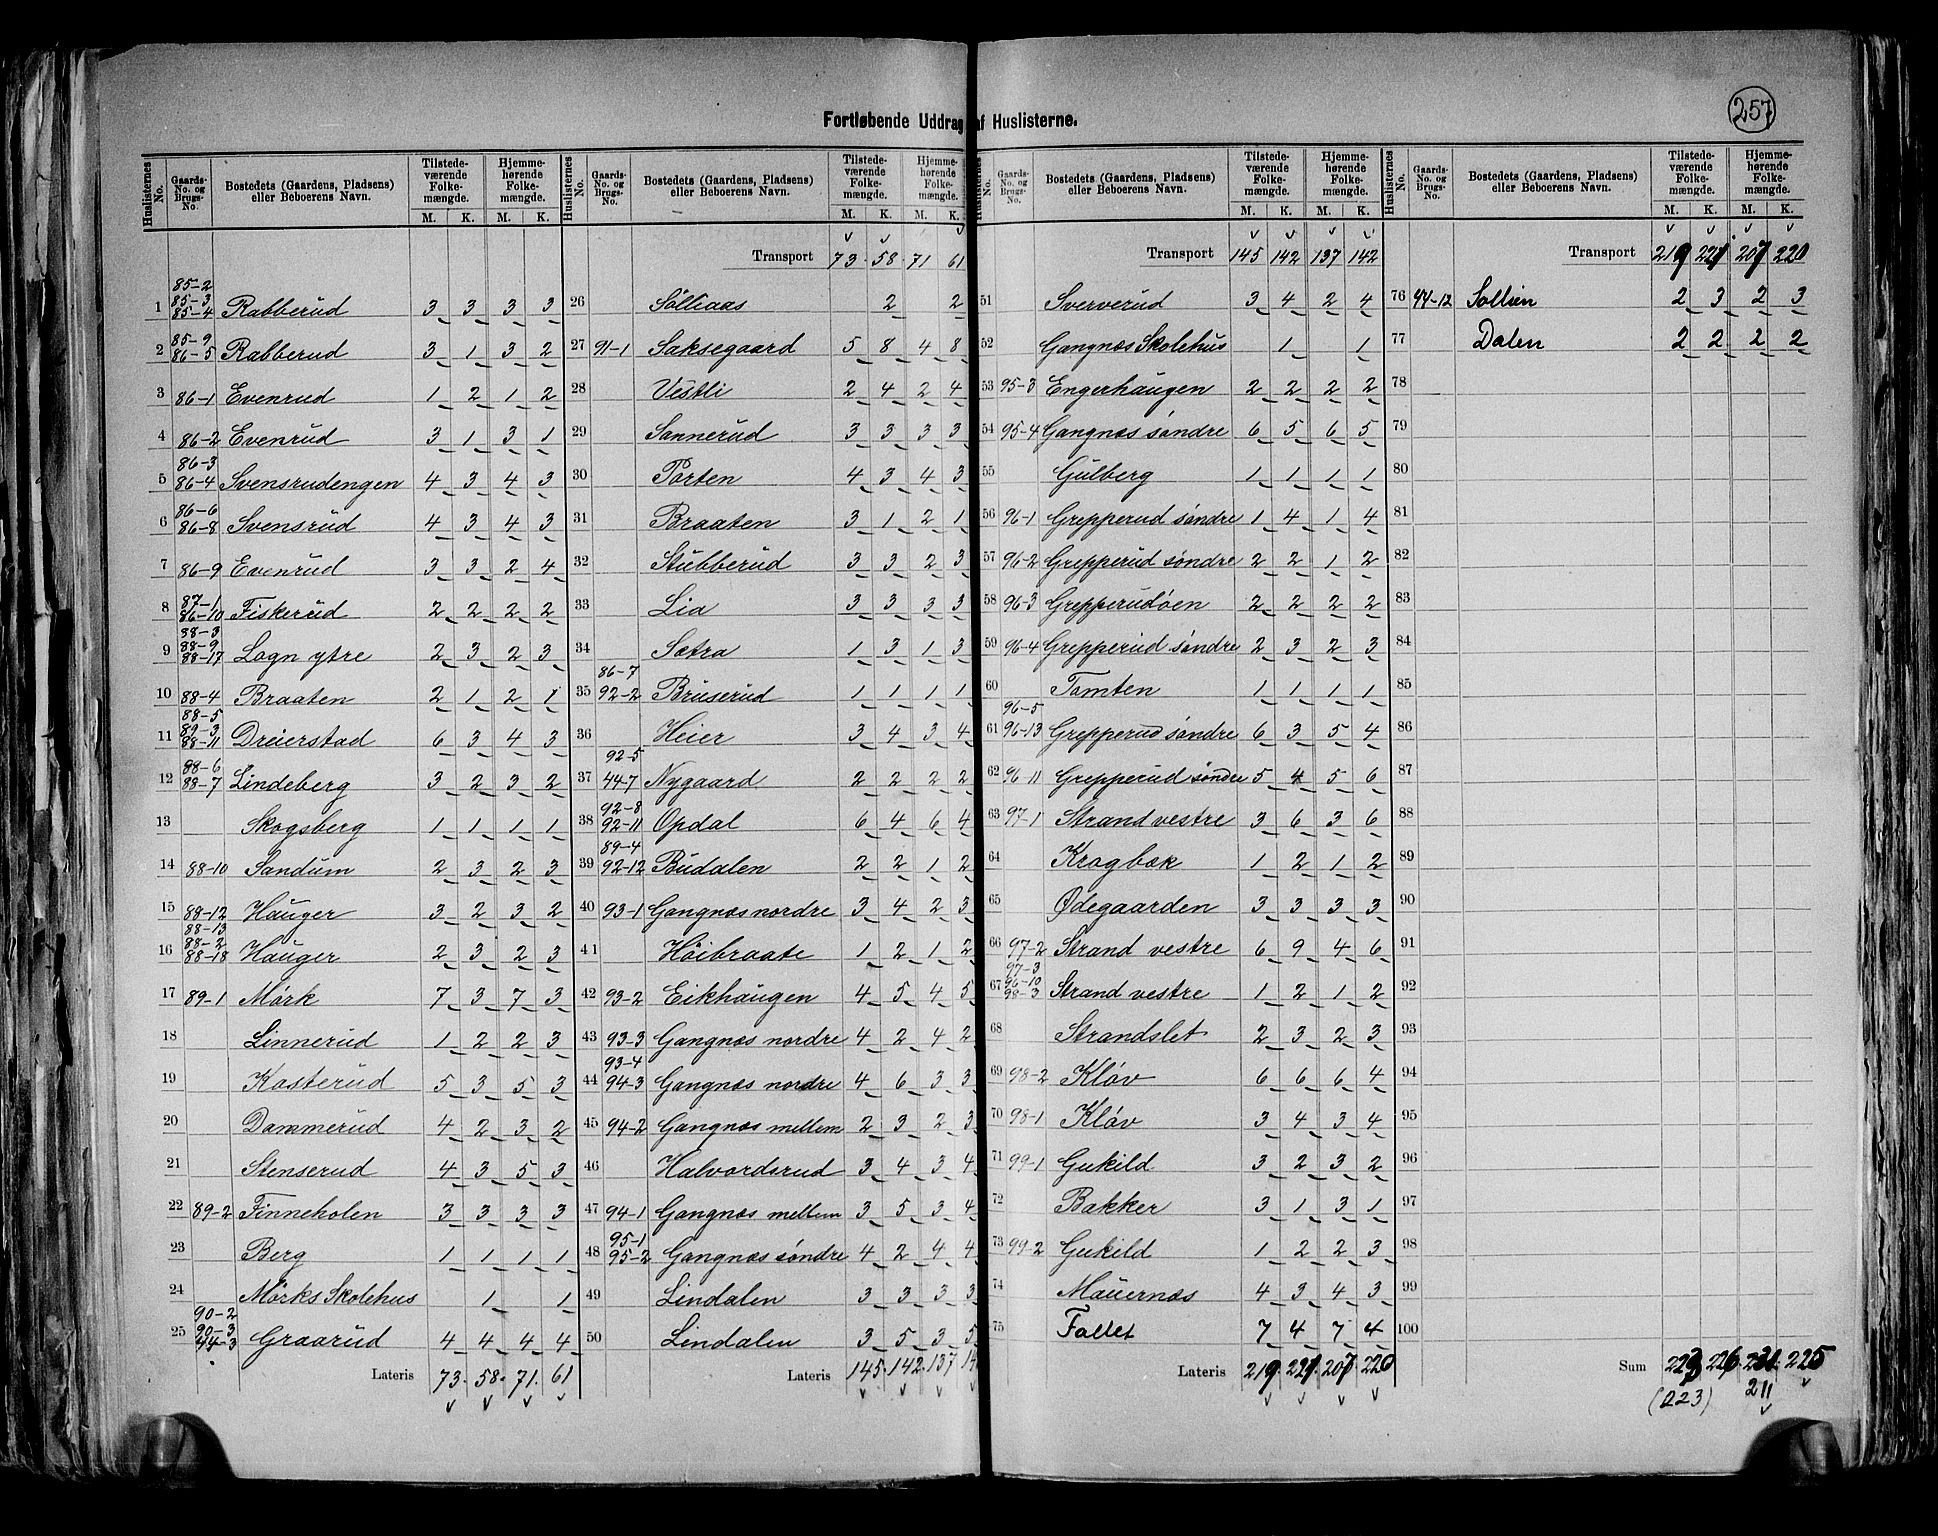 257
Fortløbende Uddrag af Huslisterne.
Huslisternes No. | Gaards-No. og Brugs-No. | Bostedets (Gaardens, Pladsens) eller Beboerens Navn. | Tilstedeværende Folkemængde. M. K. | Hjemmehørende Folkemængde. M. K.
1 85-2 85-3 85-4 Rabberud 3 3 3 3
2 85-9 86-5 Rabberud 3 1 3 2
3 86-1 Evenrud 1 2 1 2
4 86-2 Evenrud 3 1 3 1
5 86-3 86-4 Svensrudengen 4 3 4 3
6 86-6 86-8 Svensrud 4 3 4 3
7 86-9 Evenrud 3 3 2 4
8 87-1 86-10 Fiskerud 2 2 2 2
9 88-3 88-9 88-17 Logn ytre 2 3 2 3
10 88-4 Braaten 2 1 2 1
11 88-5 89-3 88-11 Dreierstad 6 3 4 3
12 88-6 88-7 Lindeberg 3 2 3 2
13 Skogsberg 1 1 1 1
14 88-10 Sandum 2 3 2 3
15 88-12 88-13 Hauger 3 2 3 2
16 88-2 88-18 Hauger 2 3 2 3
17 89-1 Mørk 7 3 7 3
18 Linnerud 1 2 2 3
19 Kasterud 5 3 5 3
20 Dammerud 4 2 3 2
21 Stenserud 4 3 5 3
22 89-2 Finneholen 3 3 3 3
23 Berg 1 1 1 1
24 Mørks Skolehus 1 1
25 90-2 90-3 44-3 Graarud 4 4 4 4
Lateris 73 58 71 61
Huslisternes No. | Gaards-No. og Brugs-No. | Bostedets (Gaardens, Pladsens) eller Beboerens Navn. | Tilstedeværende Folkemængde. M. K. | Hjemmehørende Folkemængde. M. K.
Transport 73 58 71 61
26 Sølliaas 2 2
27 91-1 Saksegaard 5 8 4 8
28 Vestli 2 4 2 4
29 Sonnerud 3 3 3 3
30 Porten 4 3 4 3
31 Braaten 3 1 2 1
32 Stubberud 3 3 2 3
33 Lia 3 3 3 3
34 Sætra 1 3 1 3
35 86-7 92-2 Bruserud 1 1 1 1
36 Heier 3 4 3 4
37 92-5 44-7 Nygaard 2 2 2 2
38 92-8 92-11 Opdal 6 4 6 4
39 89-4 92-12 Budalen 2 2 1 2
40 93-1 Gangnæs nordre 3 4 2 3
41 Høibraate 1 2 1 2
42 93-2 Eikhaugen 4 5 4 5
43 93-3 Gangnæs nordre 4 2 4 2
44 93-4 94-3 Gangnæs nordre 4 6 3 3
45 94-2 Gangnæs mellem 2 3 2 3
46 Halvordsrud 3 4 3 4
47 94-1 Gangnæs mellem 3 5 3 4
48 95-1 95-2 Gangnæs søndre 4 2 4 4
49 Lindalen 3 3 3 3
50 Lindalen 3 5 3 5
Lateris 145 142 137 14
Huslisternes No. | Gaards-No. og Brugs-No. | Bostedets (Gaardens, Pladsens) eller Beboerens Navn. | Tilstedeværende Folkemængde. M. K. | Hjemmehørende Folkemængde. M. K.
Transport 145 142 137 142
51 Sververud 3 4 2 4
52 Gangnæs Skolehus 1 1
53 95-3 Engerhaugen 2 2 2 2
54 95-4 Gangnæs søndre 6 5 6 5
55 Gulberg 1 1 1 1
56 96-1 Grepperud søndre 1 4 1 4
57 96-2 Grepperud søndre 2 2 1 2
58 96-3 Grepperudøen 2 2 2 2
59 96-4 Grepperud søndre 2 3 2 3
60 Tomten 1 1 1 1
61 96-5 96-13 Grepperud søndre 6 3 5 4
62 96-11 Grepperud søndre 5 4 5 6
63 97-1 Strand vestre 3 6 3 6
64 Krogbæk 1 2 1 2
65 Ødegaarden 3 3 3 3
66 97-2 Strand vestre 6 9 4 6
67 97-3 96-10 98-3 Strand vestre 1 2 1 2
68 Strandslet 2 3 2 3
69 98-2 Kløv 6 6 6 4
70 98-1 Kløv 3 4 3 4
71 99-1 Gukild 3 2 3 2
72 Bakker 3 1 3 1
73 99-2 Gukild 1 2 2 3
74 Mauernæs 4 3 4 3
75 Fallet 7 4 7 4
Lateris 219 221 207 220
Huslisternes No. | Gaards-No. og Brugs-No. | Bostedets (Gaardens, Pladsens) eller Beboerens Navn. | Tilstedeværende Folkemængde. M. K. | Hjemmehørende Folkemængde. M. K.
Transport 219 221 207 220
76 94-12 Sollien 2 3 2 3
77 Dalen 2 2 2 2
78
79
80
81
82
83
84
85
86
87
88
89
90
91
92
93
94
95
96
97
98
99
100
Sum 223 226 231 225
(223) 211